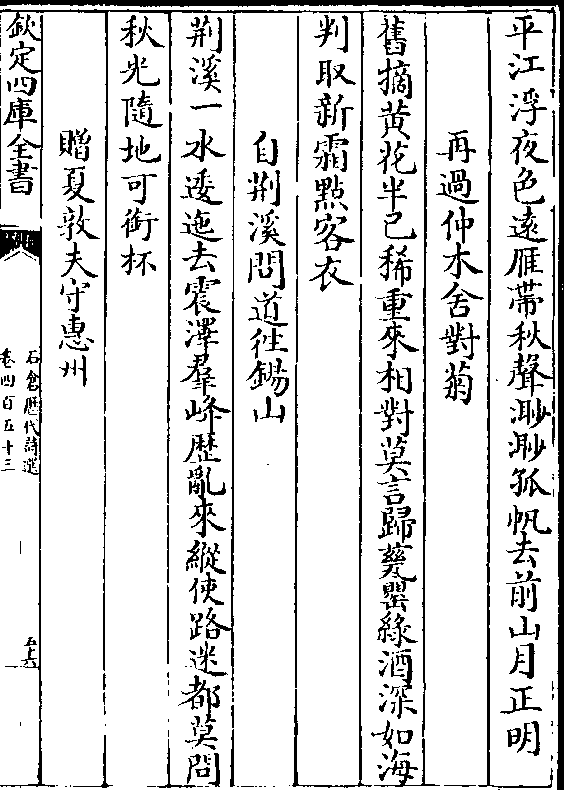 平江浮夜色遠雁帶秋聲渺渺孤帆去前山月正明
再過仲木舍對菊
舊摘黄花半已稀重來相對莫言歸甕罌緑酒深如海
判取新霜點客衣
自荆溪問道往錫山
荆溪一水逶迤去震澤羣峰歴亂來縱使路迷都莫問
秋光隨地可銜杯
贈夏敦夫守惠州
欽定四庫全書
石倉歴代詩選
卷四百五十三